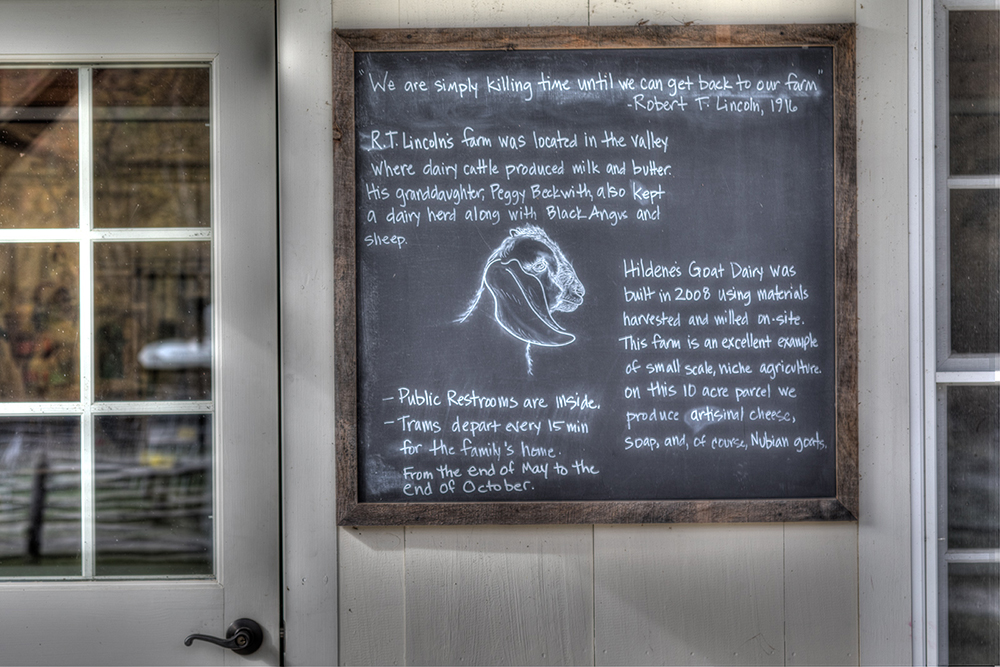 "We are simply killing time until we can get back to our farm"
-Robert T. Lincoln, 1916
R.T. Lincoln's farm was located in the valley
where dairy cattle produced milk and butter.
His granddaughter, Peggy Beckwith, also kept
a dairy herd along with Black Angus and
sheep.
Hildene's Goat Dairy was
built in 2008 using materials
harvested and milled on-site.
This farm is an excellent example
of small scale, niche agriculture.
on this 10 acre parcel we
produce artisinal cheese,
soap, and, of course, Nubian goats.
- Public Restrooms are inside.
- Trams depart every 15 min
for the family's home.
From the end of May to the
end of October.